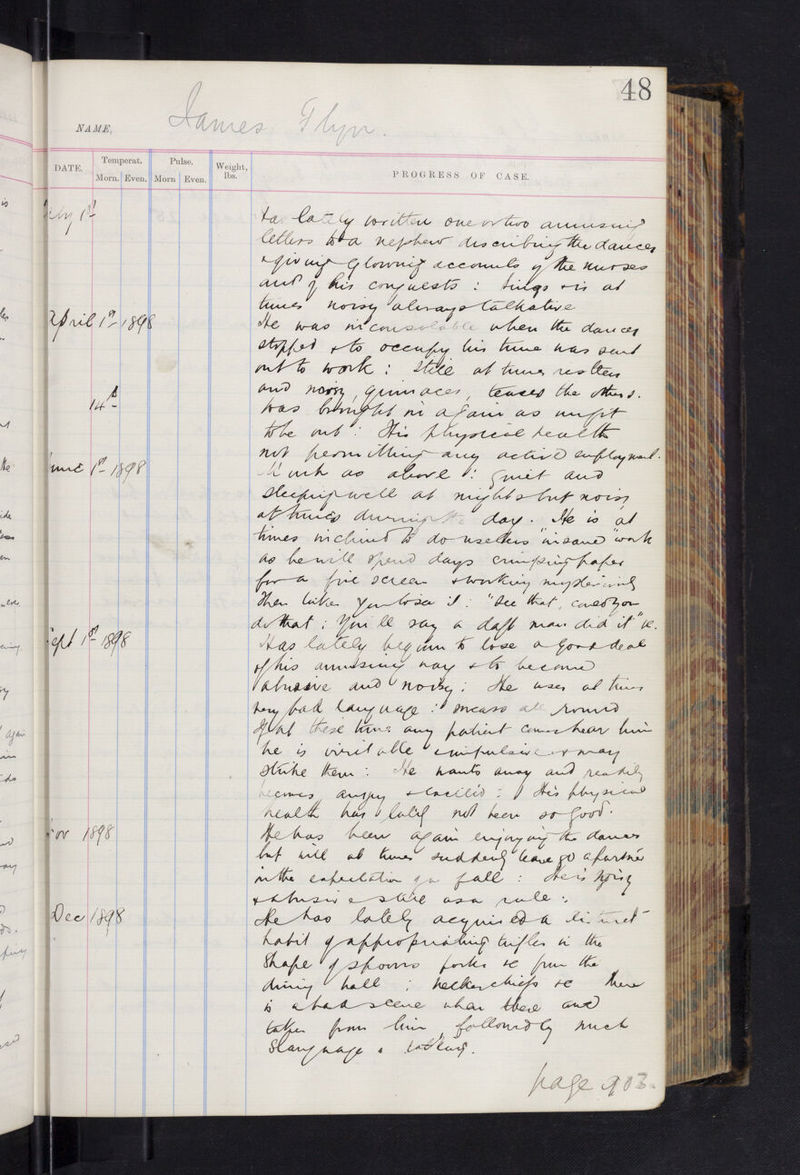 48
NAME, James Flynn.
DATE. Temperat. Pulse. Weight, lbs. PROGRESS OF CASE.
Morn. Even. Morn Even.
1st Has lately written one or two amusing
letters to a nephew discribing the dances
& giving glowing accounts of the nurses
and of his conquests : sings & is at
times noisy always talkative
April 1st 1898 He was inconsolable when the dances
stopped & to occupy his time was sent
out to work : still at times restless
and noisy, grimaces, teases the others.
14th Was brought in again as unfit
to be out : His physical health
not permitting any active employment.
June 1st 1898 Much as above : quiet and
sleeping well at nights but noisy
at times during the day. He is at
times inclined to do useless "insane" work
as he will spend days crimping paper
for a fire screen & working mysteriously
then takes you to see it : "See that, could you
do that : You'll say a daft man did it" &c.
Sept 1st 1898 Has lately begun to lose a good deal
of his amusing way & to become
abusive and noisy : He uses at times
very bad language : swears all round
If at these times any patient comes near him
he is irritable & impulsive & may
strike them : He wants away and readily
becomes angry & excited : His physical
health has lately not been so good.
Nov 1898 He has been again enjoying the dances
but will at times suddenly leave go a partner
in the expectation of a fall : He is noisy
& abusive still as a rule :
Dec 1898 He has lately acquired a distinct
habit of appropriating trifles in the
shape of spoons forks &c from the
dining hall ; neckerchiefs &c There
is a bad scene when these are
taken from him, followed by much
language &
page 903.